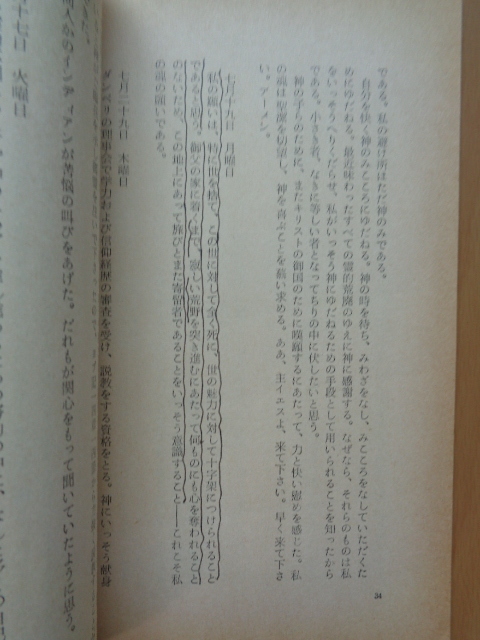 である。私の避け所はただ神のみである。
自分を快く神のみこころにゆだねる。神の時を待ち、みわざをなし、みこころをなしていただくた
めにゆだねる。最近味わったすべての霊的荒廃のゆえに神に感謝する。なぜなら、それらのものは私
をいっそうへりくだらせ、私がいっそう神にゆだねるための手段として用いられることを知ったから
である。小さき者、なきに等しい者となってちりの中に伏したいと思う。
神の子らのために、またキリストの御国のために嘆願するにあたって、力と快い慰めを感じた。私
の魂は聖潔を切望し、神を喜ぶことを慕い求める。ああ、主イエスよ、来て下さい。早く来て下さ
い。アーメン。
七月十九日 月曜日
私の願いは、特に世を捨て、この世に対して全く死に、世の魅力に対して十字架につけられること
であると思う。御父の家に着くまで、寂しい荒野を突き進むにあたって何ものにも心を奪われること
のないため、この地上にあって旅びとまた寄留者であることをいっそう意識すること――これこそ私
の魂の願いである。
七月二十九日 木曜日
ダンベリの理事会で学力および信仰経歴の審査を受け、説教をする資格をとる。神にいっそう献身
34
十七日 火曜日
人かのインディアンが苦悩の叫びをあげた。だれもが関心をもって聞いていたように思う。